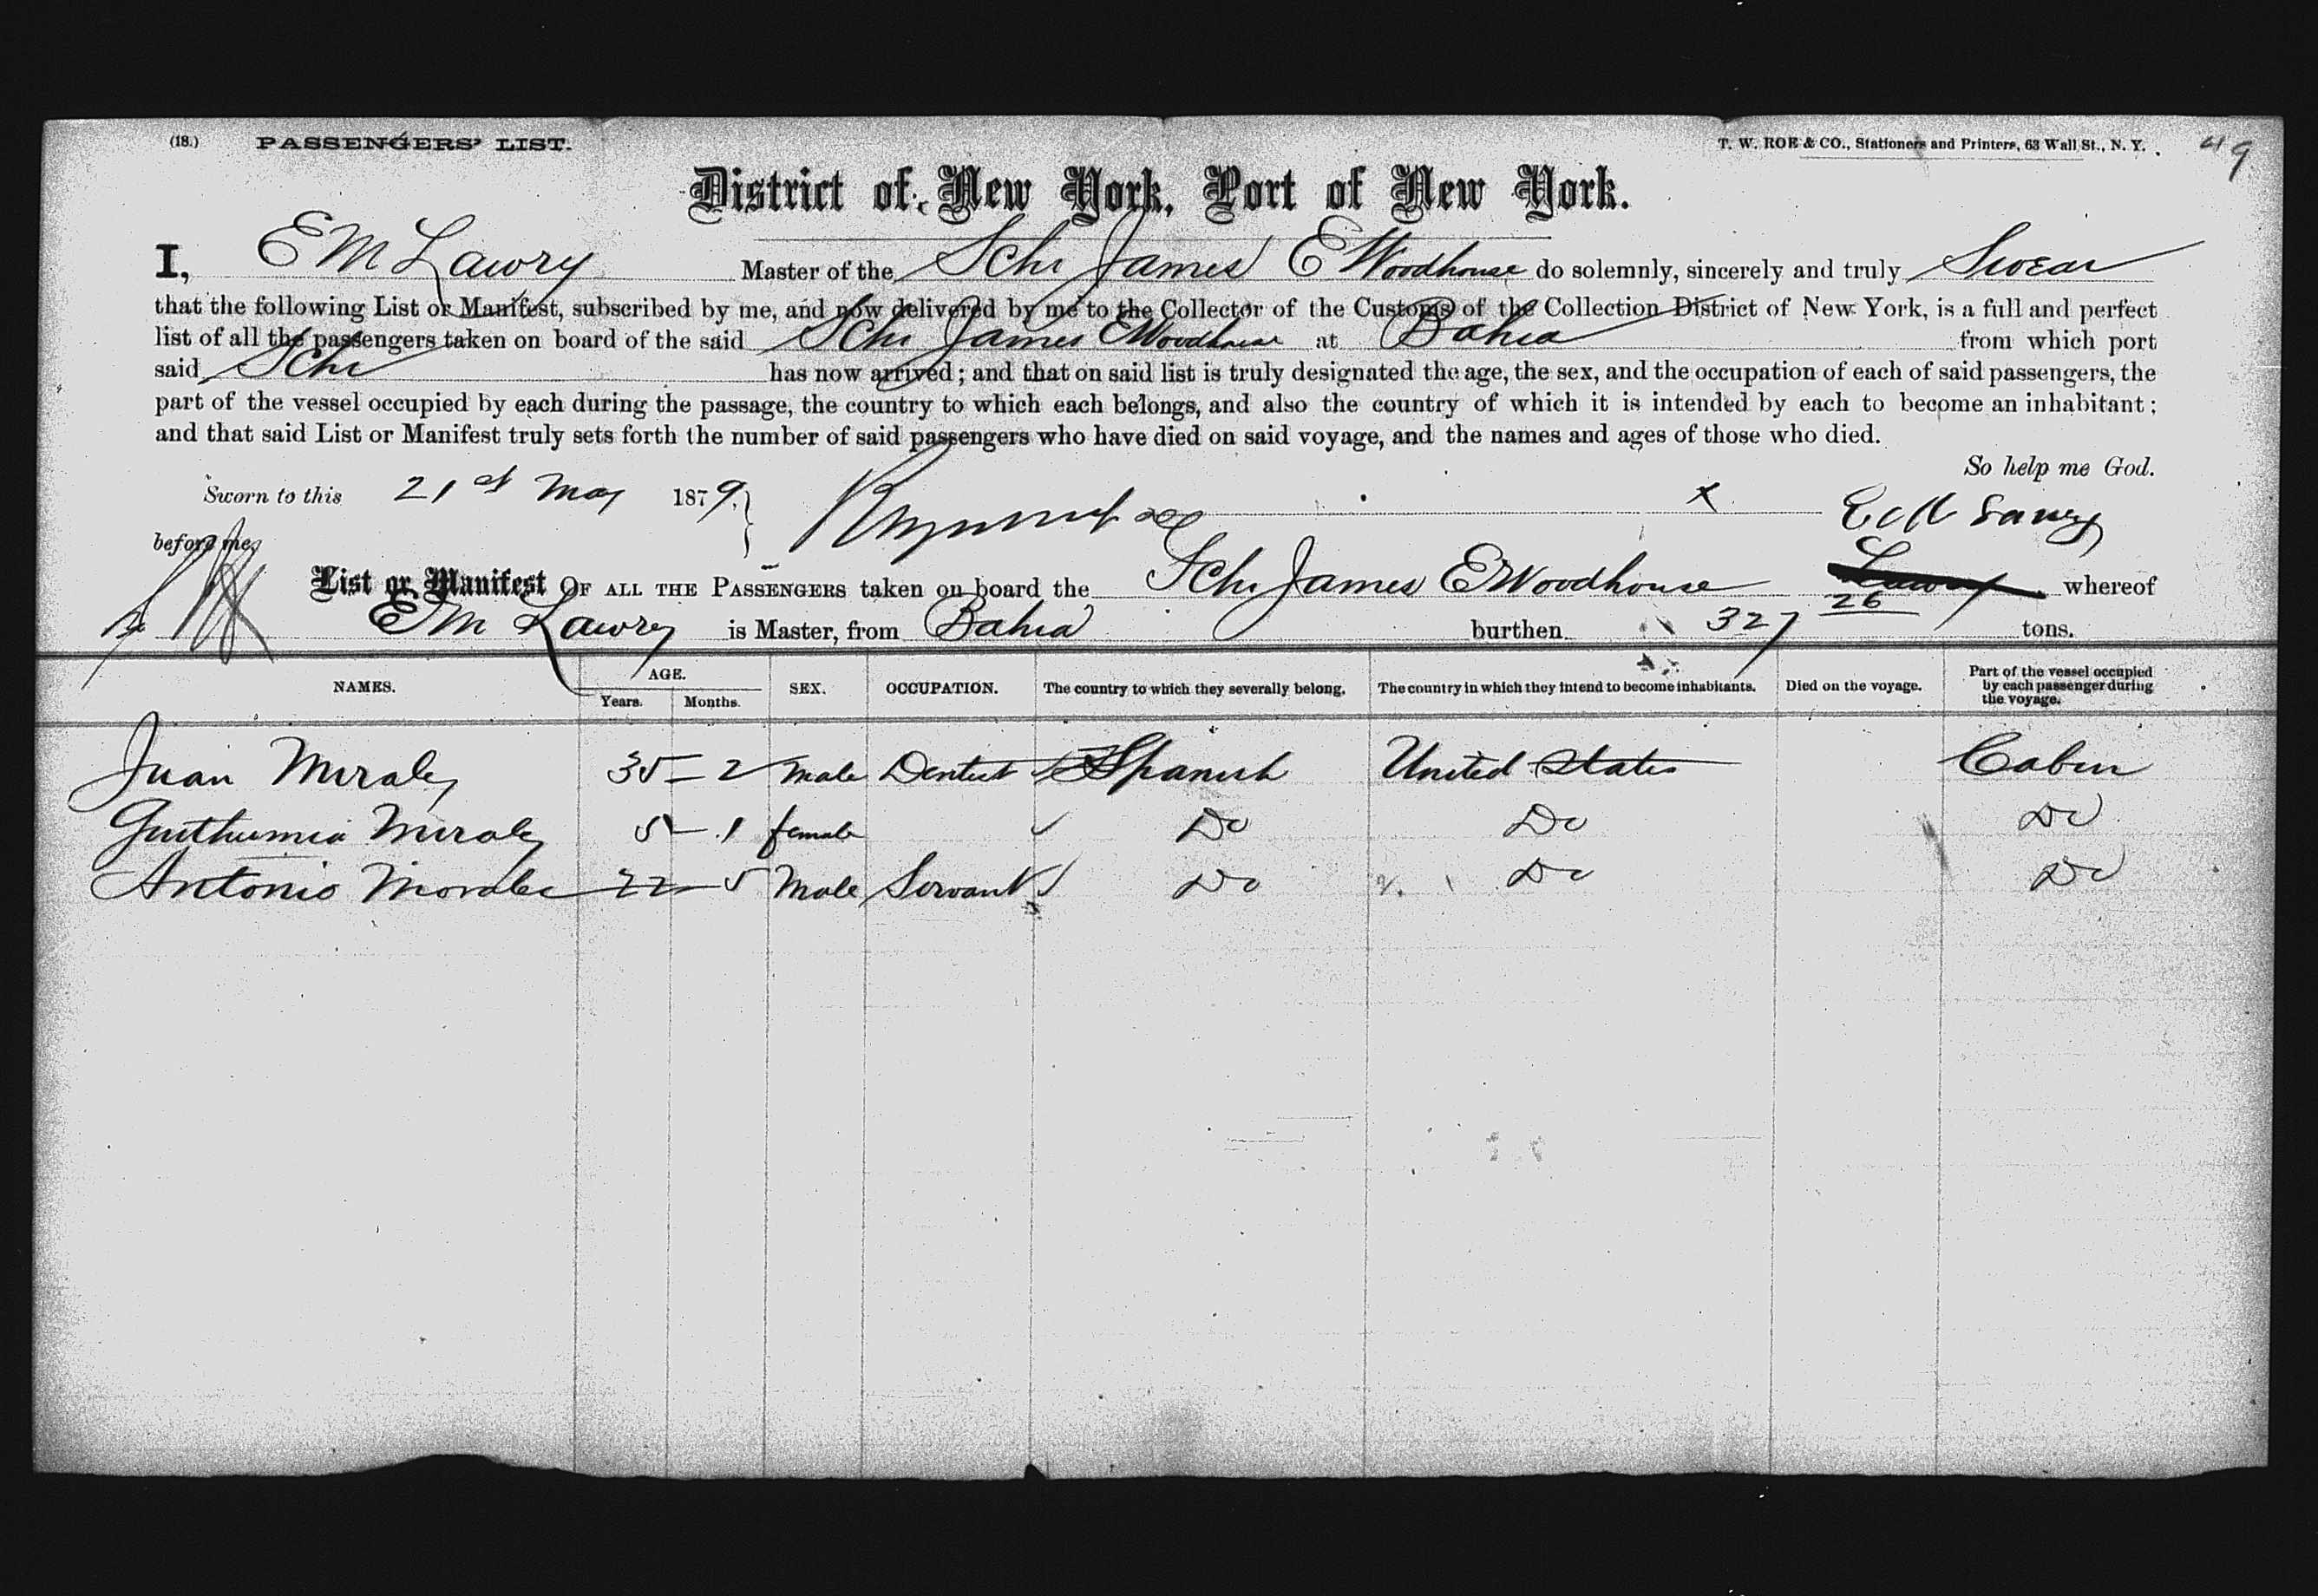 (18.) PASSENGERS' LIST. T. W. ROE & CO., Stationers and Printers, 63 Wall St., N. Y. 49
District of New York, Port of New York.
I, E M Lawry Master of the Schr James E Woodhouse do solemnly, sincerely and truly Swear
that the following List or Manifest, subscribed by me, and now delivered by me to the Collector of the Customs of the Collection District of New York, is a full and perfect
list of all the passengers taken on board of the said Schr James E Woodhouse at Bahia from which port
said Schr has now arrived; and that on said list is truly designated the age, the sex, and the occupation of each of said passengers, the
part of the vessel occupied by each during the passage, the country to which each belongs, and also the country of which it is intended by each to become an inhabitant;
and that said List or Manifest truly sets forth the number of said passengers who have died on said voyage, and the names and ages of those who died.
So help me God.
Sworn to this 21st May 1879. x E M Lawry
before me,
List or Manifest OF ALL THE PASSENGERS taken on board the Schr James E Woodhouse whereof
E M Lawry is Master, from Bahia burthen 327 26 tons.
NAMES. AGE. Years. Months. SEX. OCCUPATION. The country to which they severally belong. The country in which they intend to become inhabitants. Died on the voyage. Part of the vessel occupied by each passenger during the voyage.
Juan 35 - 2 male Dentist Spanish United States Cabin
5 - 1 female Do Do Do
Antonio Morales 22 - 5 Male Servant Do Do Do